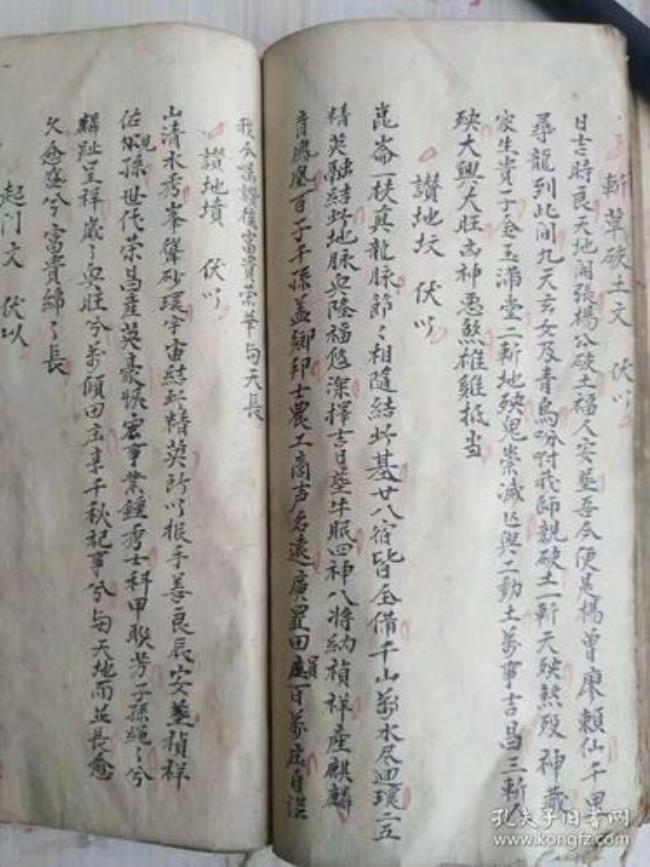 斬草破土文 伏以
日吉時良天地開張楊公破土福人安塟吾今便是楊曾廖頼仙千里
尋龍到此間九天玄女及青烏吩咐我師親破土一斬天殃煞殁神藏
家生貴子金玉滿堂二斬地殃鬼祟滅
興工動土萬事吉昌三斬
殃大興大旺凶神惡煞雄雞抵当
讃地坟 伏以
崑崙一枝真龍脉節々相隨結此基廿八宿皆全備千山萬水尽迴環二五
精英融結此地脉興隆福悠深擇吉日塟牛眠四神八將納禎祥產麒麟
百子千孫蓋鄉邦士農工商声名遠廣置田庄百萬
我今講讃後富貴荣华与天長
讃地墳 伏以
山清水秀峯聳砂環宇宙結此精英所以报乎善良辰安塟禎祥
佑兒孫世代荣昌產英豪恢宏事業鍾秀士科甲聯芳子孫繩々兮
麟趾呈祥歲々興旺兮萬傾田庄千秋祀事兮与天地而並長愈
久愈盛兮富貴綿々長
起门文 伏以
孔夫子旧书网
www.kongfz.com